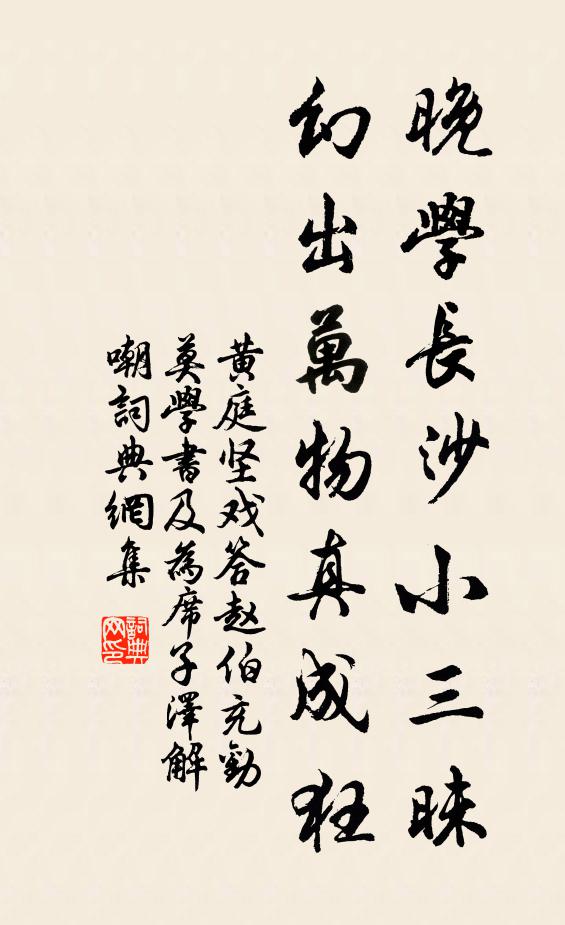 晚學長沙小三昧
幻出萬物真成狂
黄庭坚戏答赵伯充勸
莫學書及為席子澤解
嘲詞典網集
詞典網印